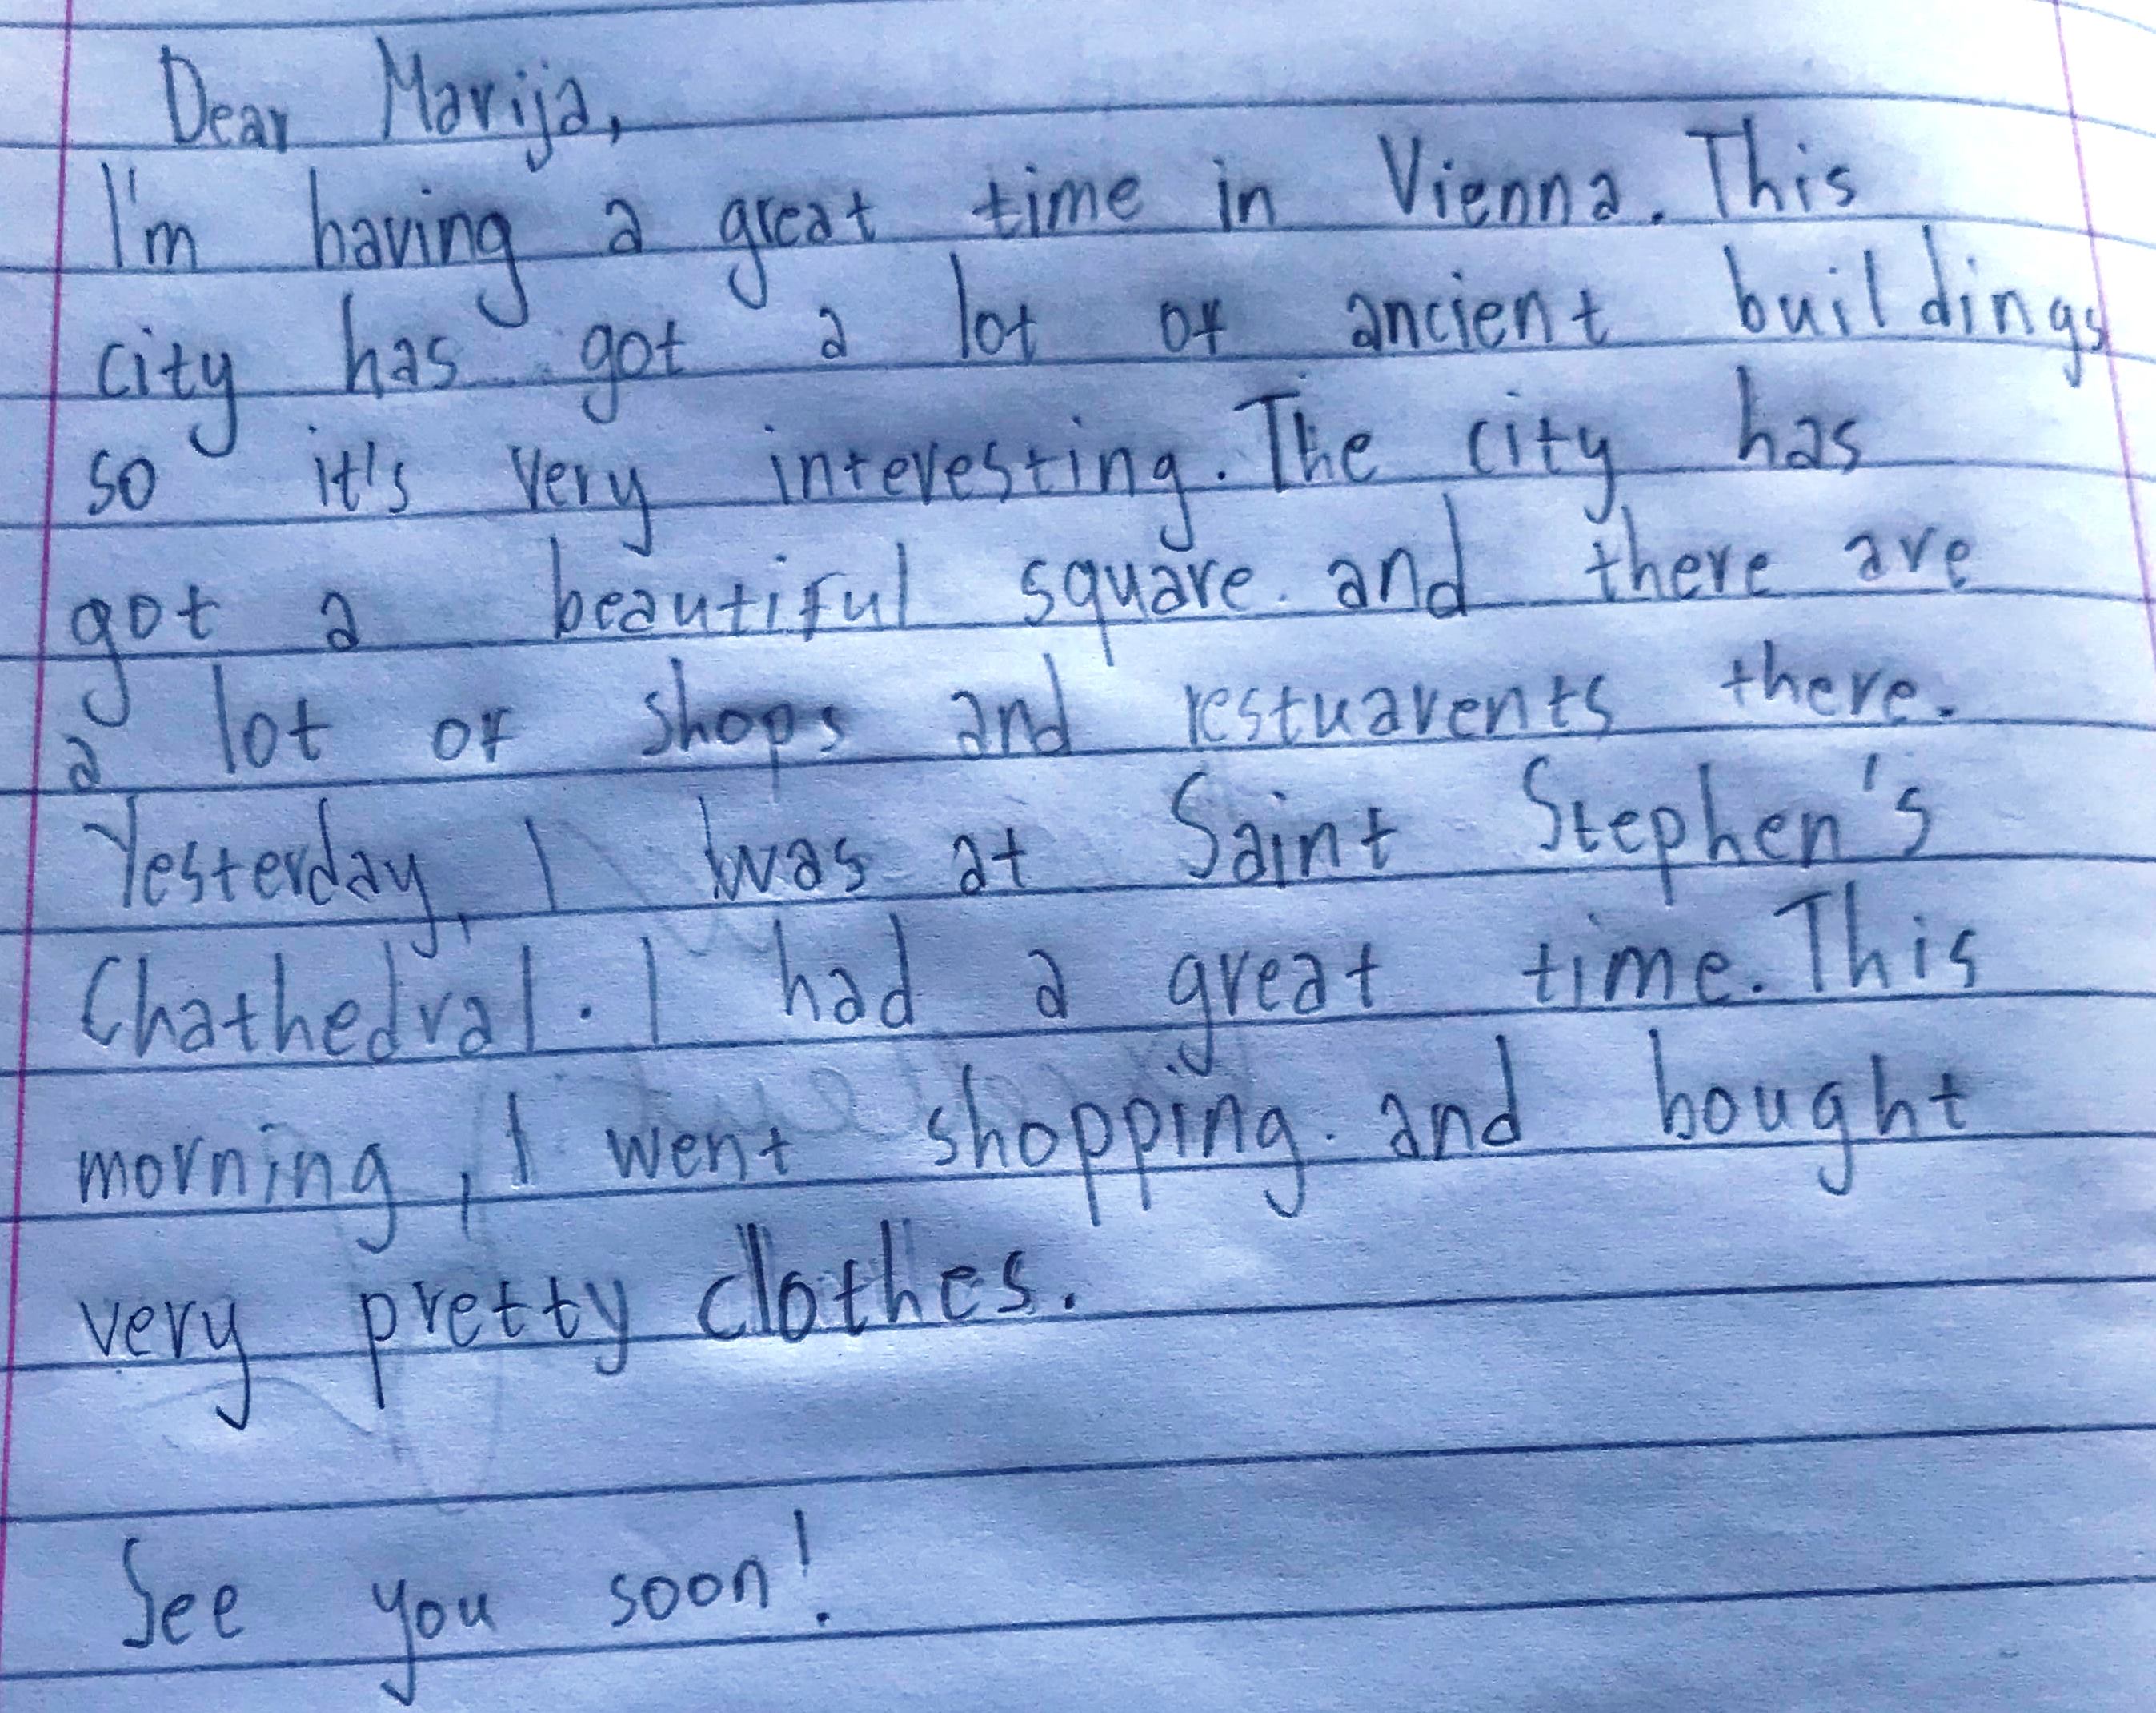 Dear Marija,
I'm having a great time in Vienna. This
city has got a lot of ancient buildings
so it's very interesting. The city has
got a beautiful square and there are
a lot of shops and restuarents there.
Yesterday, I was at Saint Stephen's
Chathedral. I had a great time. This
morning, I went shopping and bought
very pretty clothes.
See you soon!